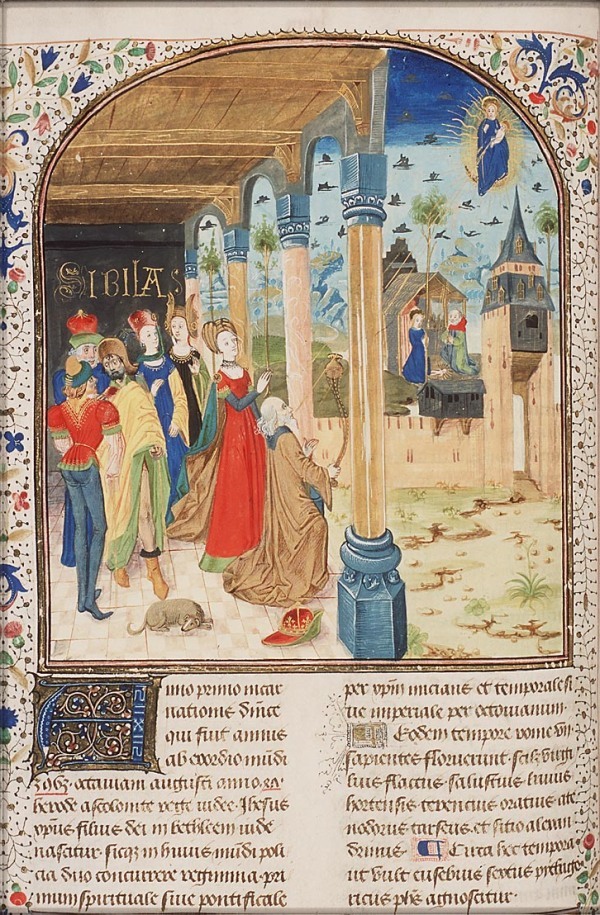 SIBILAS
Anno primo incar
nationis dnice
qui fuit annus
ab exordio mudi
3963 octaviani augusti anno
herode ascolonite rege iudee Ihesus
xpus filius dei in bethleem iude
nascitur sicq in huius mudi poli
cia duo concurrere regimina pri
mum spirituale sive pontificale
per xpm inicians et temporale si
ve imperiale per octovianum
Eodem tempore rome vii
sapientes floruerunt
lius flaccus salustius livius
hortensis terencius oracius ate
nodorus tarseus et sitio alexan
drinus Circa hec tempora
ut vult eusebius sextus
ricus phs agnoscitur